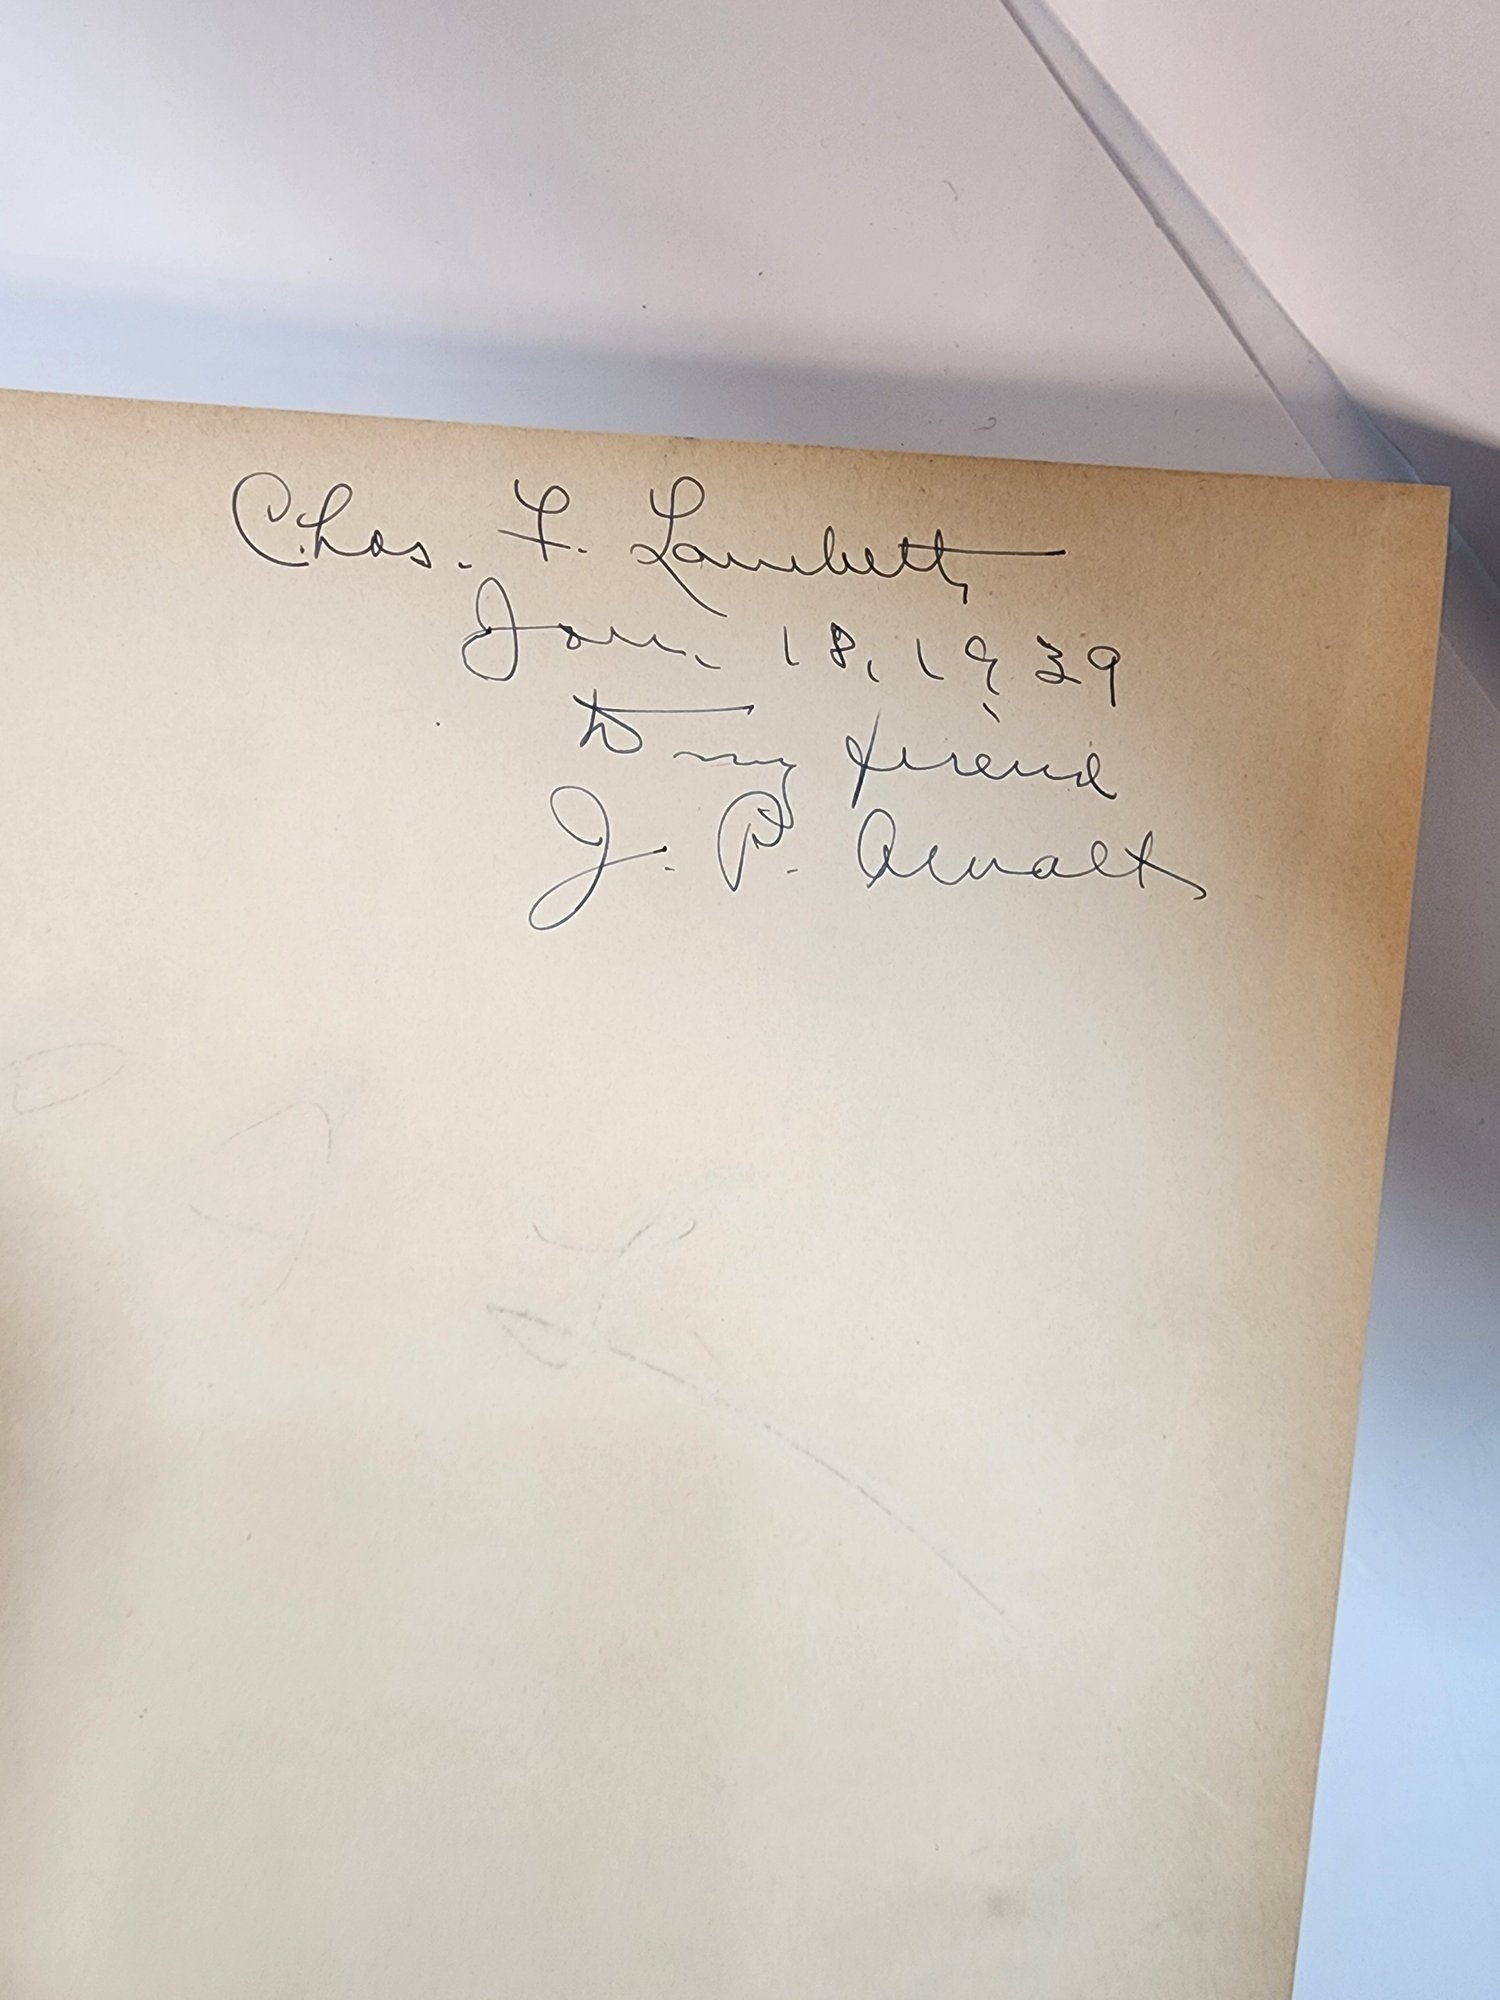 Chas. F. Lambert,
Jan. 18, 1939
To my friend
J. P. Arwalt